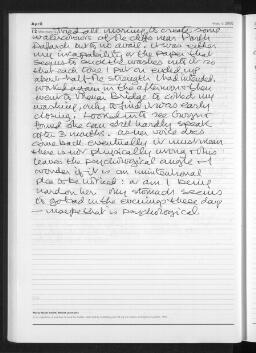 April
Tried all morning to create some
watercolours of the cliffs near Porth
to no avail. it was either
my incapability or the paper that
seems to suck the washes into it so
that each tone I put on ended up
about half the strength I had intended.
worked again in the afternoon then
went to Menai Bridge to collect my
washing, only to find it was early
closing. Looked into see
found she can still hardly speak
after 3 months. as her voice does
come back eventually it must mean
there is not physically wrong & this
leaves the psychological angle – I
wonder if it is an unintentional
plea to be noticed: or am I being
hard on her. My stomach seems
to go bad in the evenings these days
– maybe that is psychological